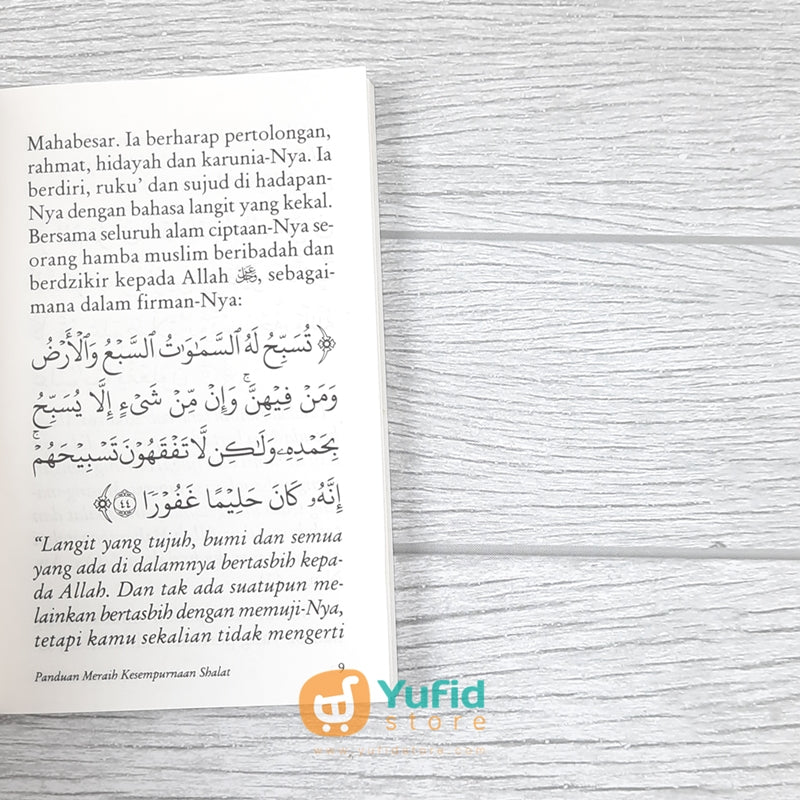 Mahabesar. Ia berharap pertolongan,
rahmat, hidayah dan karunia-Nya. Ia
berdiri, ruku’ dan sujud di hadapan-
Nya dengan bahasa langit yang kekal.
Bersama seluruh alam ciptaan-Nya se-
orang hamba muslim beribadah dan
berdzikir kepada Allah ﷻ, sebagai-
mana dalam firman-Nya:
﴿ تُسَبِّحُ لَهُ السَّمَٰوَٰتُ السَّبْعُ وَالْأَرْضُ
وَمَنْ فِيهِنَّ ۚ وَإِنْ مِّنْ شَيْءٍ إِلَّا يُسَبِّحُ
بِحَمْدِهِۦ وَلَٰكِن لَّا تَفْقَهُونَ تَسْبِيحَهُمْ ۚ
إِنَّهُۥ كَانَ حَلِيمًا غَفُورًا ٤٤ ﴾
“Langit yang tujuh, bumi dan semua
yang ada di dalamnya bertasbih kepa-
da Allah. Dan tak ada suatupun me-
lainkan bertasbih dengan memuji-Nya,
tetapi kamu sekalian tidak mengerti
Panduan Meraih Kesempurnaan Shalat 9
Yufid
store